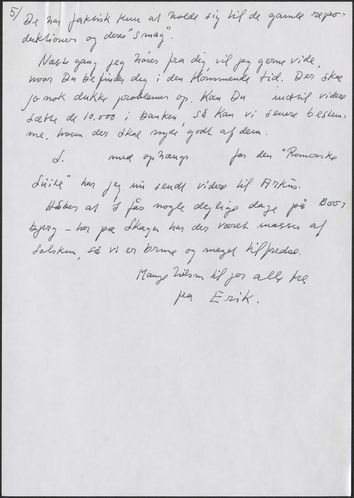 5/
De har faktisk kun at holde sig til de gamle repro-
duktioner og deres "smag".
Næste gang jeg hører fra dig, vil jeg gerne vide,
hvor Du befinder dig i den kommende tid. Der skal
jo nok dukke problemer op. Kan Du indtil videre
sætte de 10.000 i banken, så kan vi senere bestem-
me, hvem der skal nyde godt af dem.
med ophang for den "Romanske
Suite" har jeg nu sendt videre til
Håber at I får nogle dejlige dage på Bov-
bjerg - her på Skagen har der været masser af
solskin, så vi er brune og meget tilfredse.
Mange hilsner til jer alle tre
fra Erik.